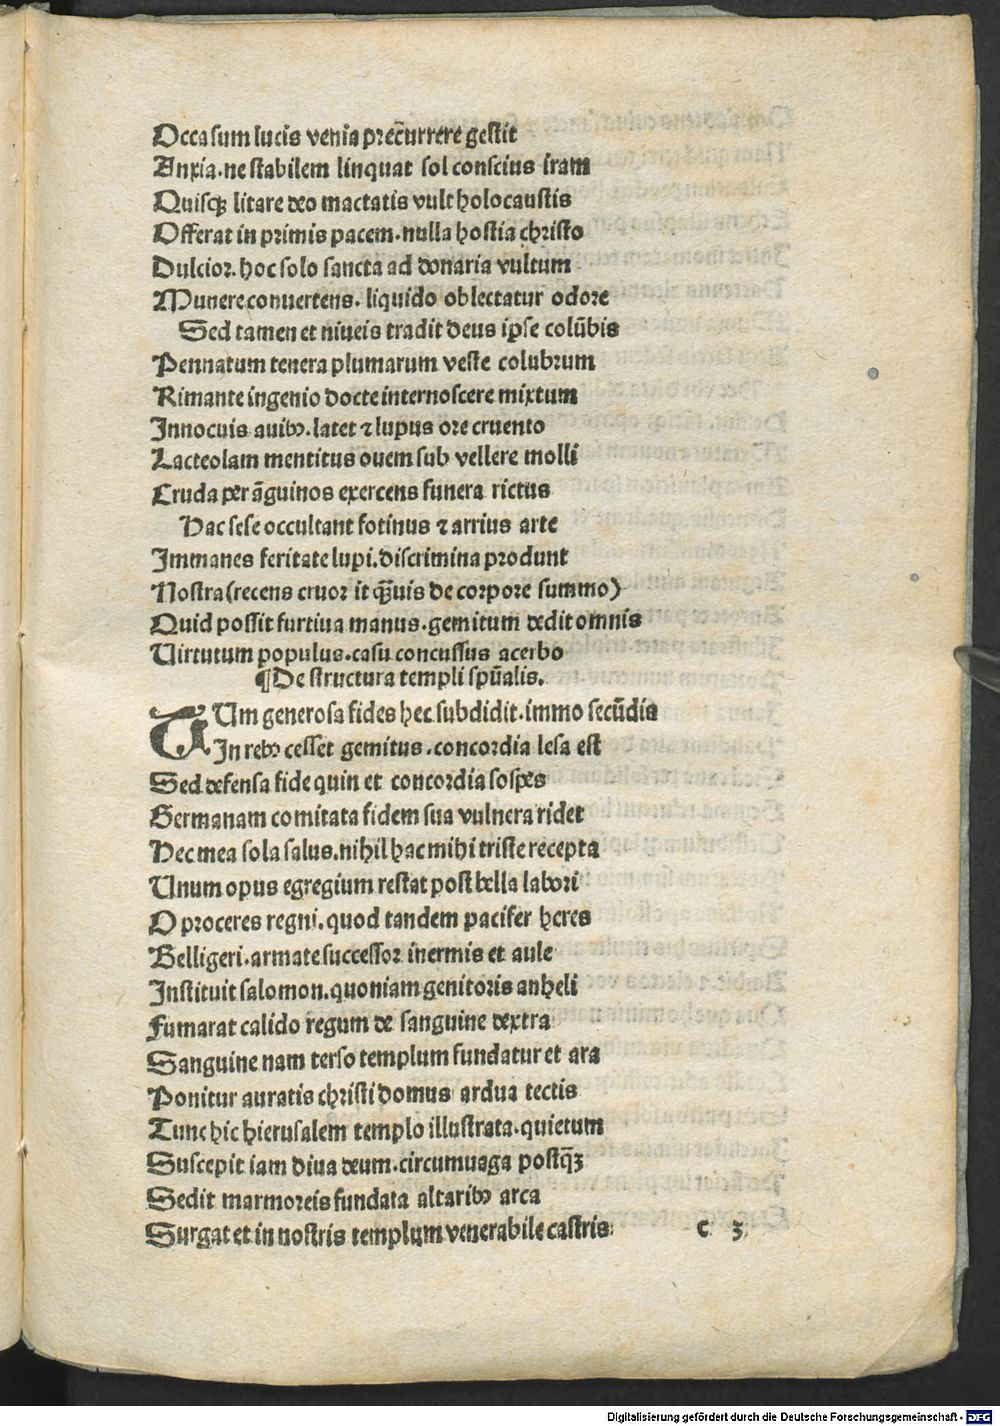 Occasum lucis venia prec̄urrere gestit
Anxia.ne stabilem linquat sol conscius iram
Quisqȝ litare deo mactatis vult holocaustis
Offerat in primis pacem.nulla hostia christo
Dulcior.hoc solo sancta ad donaria vultum
Munere conuertens.liquido oblectatur odore
Sed tamen et niueis tradit deus ipse colūbis
Pennatum tenera plumarum veste colubrum
Rimante ingenio docte internoscere mixtum
Innocuis auibꝰ.latet ⁊ lupus ore cruento
Lacteolam mentitus ouem sub vellere molli
Cruda per āguinos exercens funera rictus
Hac sese occultant fotinus ⁊ arrius arte
Immanes feritate lupi.discrimina produnt
Nostra(recens cruor it qȝ̄uis de corpore summo)
Quid possit furtiua manus.gemitum dedit omnis
Uirtutum populus.casu concussus acerbo
¶De structura templi spūalis.
TUm generosa fides hec subdidit.immo secūdis
In rebꝰ cesset gemitus.concordia lesa est
Sed defensa fide quin et concordia sospes
Germanam comitata fidem sua vulnera ridet
Hec mea sola salus.nihil hac mihi triste recepta
Unum opus egregium restat post bella labori
O proceres regni.quod tandem pacifer heres
Belligeri.armate successor inermis et aule
Instituit salomon.quoniam genitoris anheli
Fumarat calido regum de sanguine dextra
Sanguine nam terso templum fundatur et ara
Ponitur auratis christi domus ardua tectis
Tunc hic hierusalem templo illustrata.quietum
Suscepit iam diua deum.circumuaga postqȝ̄
Sedit marmoreis fundata altaribꝰ arca
Surgat et in nostris templum venerabile castris.
c 3
Digitalisierung gefördert durch die Deutsche Forschungsgemeinschaft - DFG